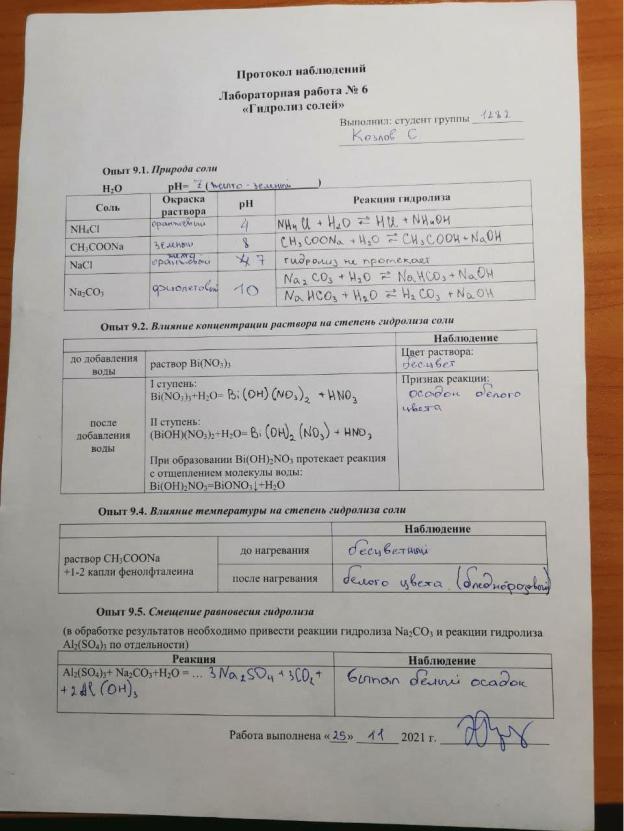 Протокол наблюдений
Лабораторная работа № 6
«Гидролиз солей»
Выполнил: студент группы 1282
Козлов С
Опыт 9.1. Природа соли
H₂O pH= 7 (желто-зеленый)
Соль Окраска раствора pH Реакция гидролиза
NH₄Cl оранжевый 4 NH₄Cl + H₂O ⇄ HCl + NH₄OH
CH₃COONa зеленый 8 CH₃COONa + H₂O ⇄ CH₃COOH + NaOH
NaCl оранжевый 7 гидролиз не протекает
Na₂CO₃ фиолетовый 10 Na₂CO₃ + H₂O ⇄ NaHCO₃ + NaOH
NaHCO₃ + H₂O ⇄ H₂CO₃ + NaOH
Опыт 9.2. Влияние концентрации раствора на степень гидролиза соли
Наблюдение
до добавления воды раствор Bi(NO₃)₃ Цвет раствора:
бесцвет
после добавления воды
I ступень: Признак реакции:
Bi(NO₃)₃+H₂O= Bi(OH)(NO₃)₂ + HNO₃ осадок белого
цвета
II ступень:
(BiOH)(NO₃)₂+H₂O= Bi(OH)₂(NO₃) + HNO₃
При образовании Bi(OH)₂NO₃ протекает реакция
с отщеплением молекулы воды:
Bi(OH)₂NO₃=BiONO₃↓+H₂O
Опыт 9.4. Влияние температуры на степень гидролиза соли
Наблюдение
раствор CH₃COONa
+1-2 капли фенолфталеина
до нагревания бесцветный
после нагревания белого цвета (бледнорозовый)
Опыт 9.5. Смещение равновесия гидролиза
(в обработке результатов необходимо привести реакции гидролиза Na₂CO₃ и реакции гидролиза
Al₂(SO₄)₃ по отдельности)
Реакция Наблюдение
Al₂(SO₄)₃+ Na₂CO₃+H₂O = ... 3Na₂SO₄ + 3CO₂ + выпал белый осадок
+ 2Al(OH)₃
Работа выполнена «25» 11 2021 г.